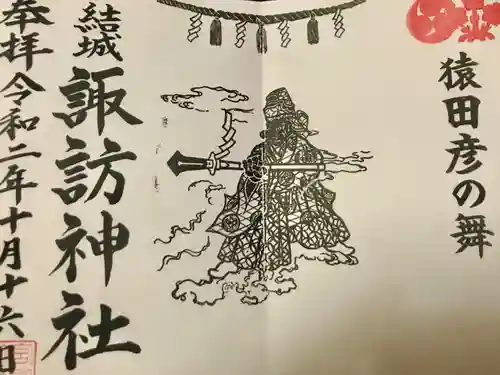 猿田彦の舞
結城
諏訪神社
奉拝 令和二年十月十六日